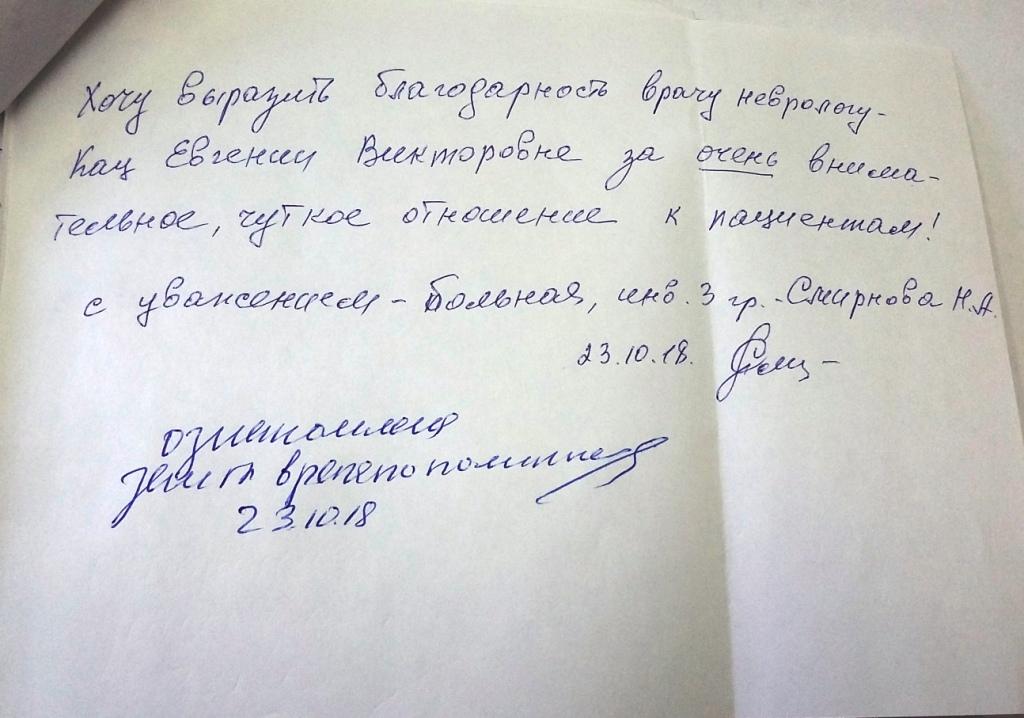 Хочу выразить благодарность врачу неврологу -
Кац Евгении Викторовне за очень внима-
тельное, чуткое отношение к пациентам!
с уважением - больная, инв. 3 гр. - Смирнова Н.А.
23.10.18.
ознакомлена
23.10.18